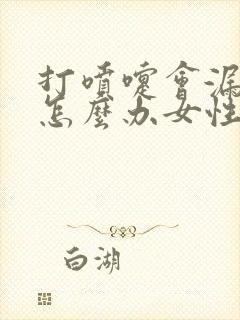 打噴嚏會漏
怎麼办女性
白湖